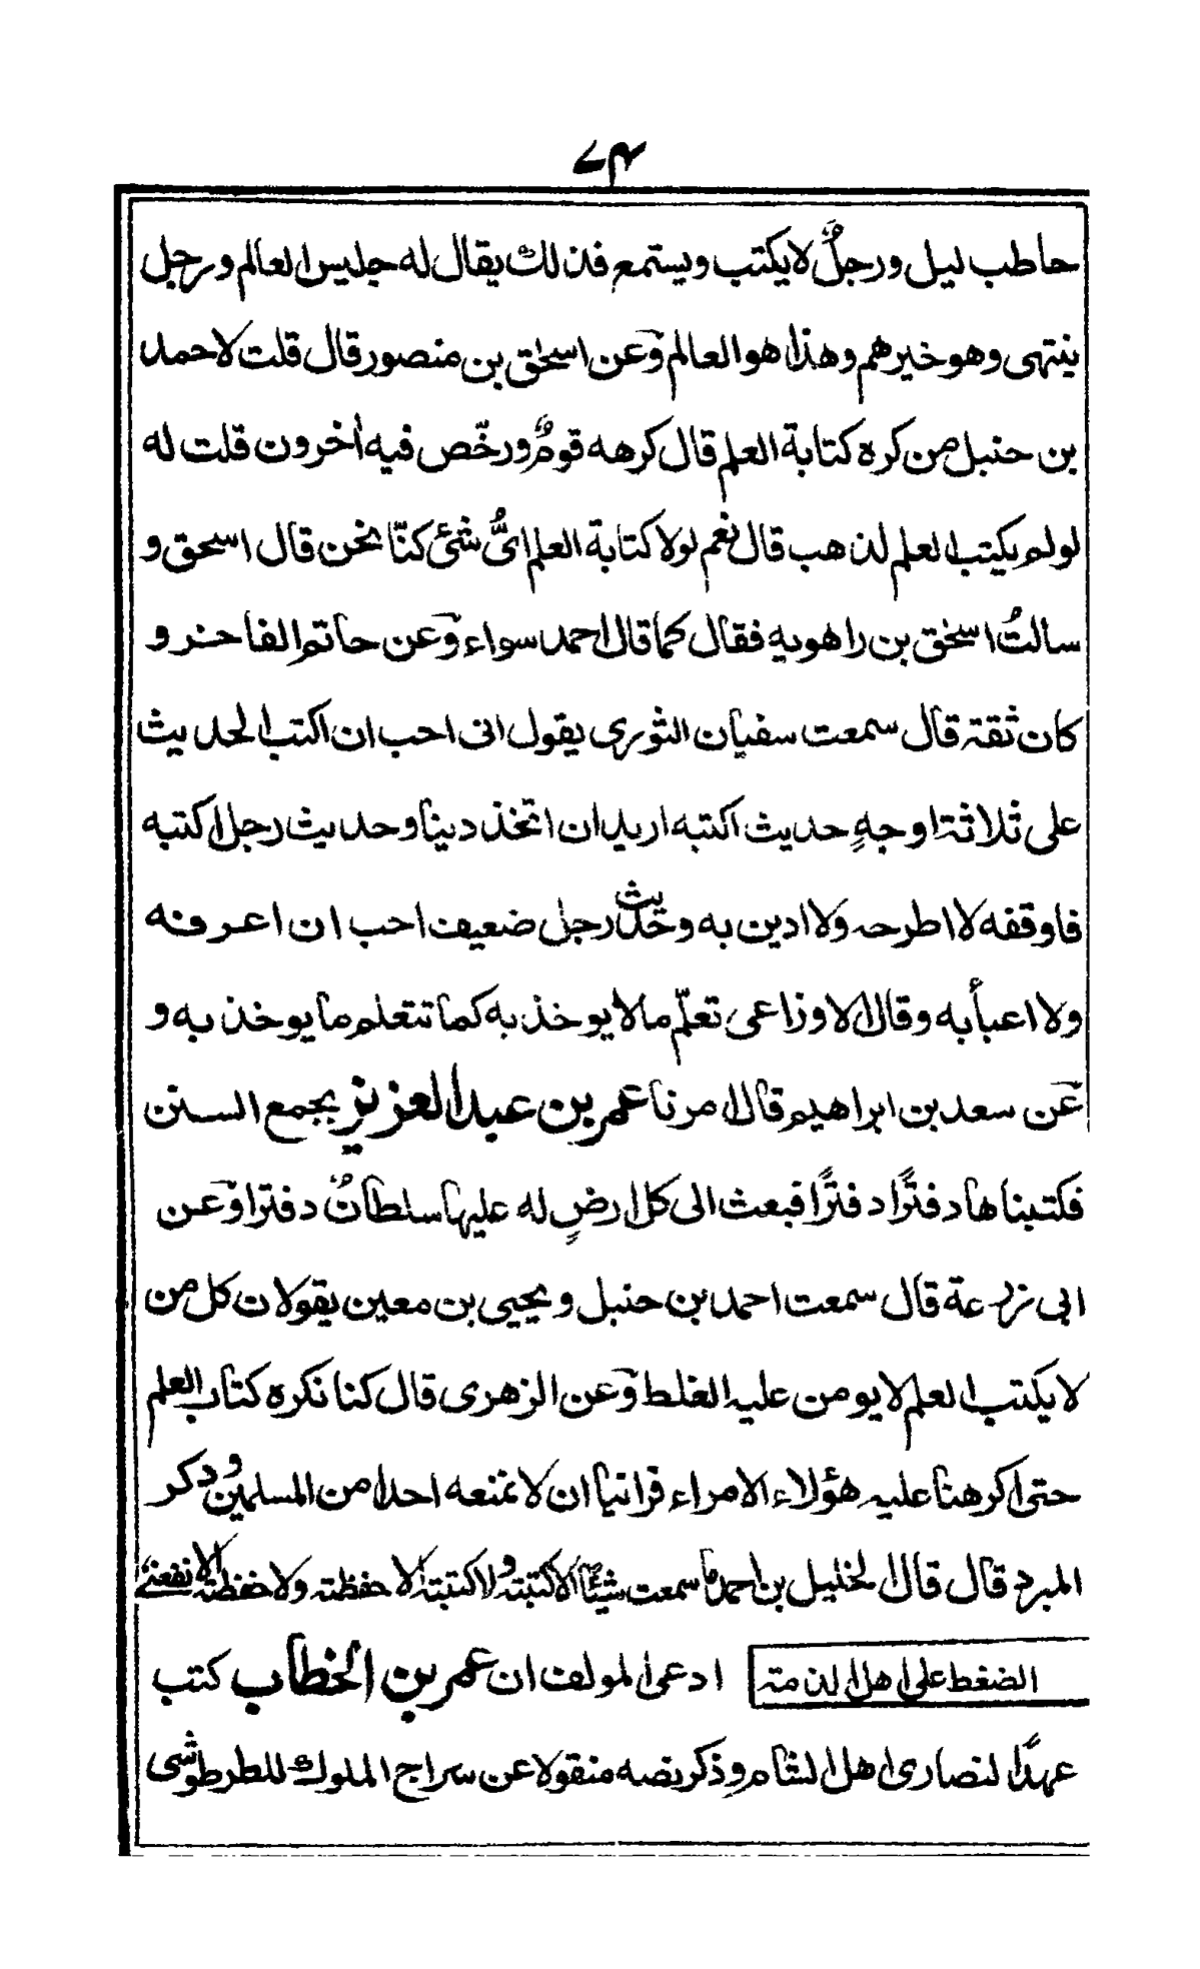 ٧٤
حاطب ليل ورجلٌ لا يكتب ويستمع فذلك يقال له جليس العالم ورجل
ينتهى وهو خيرهم وهذا هو العالم وعن اسحٰق بن منصور قال قلت لاحمد
بن حنبل من كره كتابة العلم قال كرهه قومٌ ورخّص فيه اٰخرون قلت له
لو لم يكتب العلم لذهب قال نعم لولا كتابة العلم اىُّ شئ كنّا نحن قال اسحق و
سالتُ اسحٰق بن راهويه فقال كما قال احمد سواء وعن حاتم الفاخر و
كان ثقة قال سمعت سفيان الثورى يقول انى احب ان اكتب الحديث
على ثلاثة اوجهٍ حديث اكتبه اريد ان اتخذ دينا وحديث رجل اكتبه
فاوقفه لا اطرحه ولا ادين به وحديث رجل ضعيف احب ان اعرفه
ولا اعبأ به وقال الاوزاعى تعلّم ما لا يوخذ به كما تتعلم ما يوخذ به و
عن سعد بن ابراهيم قال امرنا عمر بن عبد العزيز بجمع السنن
فكتبناها دفترًا دفترًا فبعث الى كل ارضٍ له عليها سلطانٌ دفترا وعن
ابى زرعة قال سمعت احمد بن حنبل ويحيى بن معين يقولان كل من
لا يكتب العلم لا يومن عليه الغلط وعن الزهرى قال كنا نكره كتاب العلم
حتى اكرهنا عليه هؤلاء الامراء فراٰينا ان لا نمنعه احدا من المسلمين وذكر
المبرد قال قال الخليل بن احمد ما سمعت شيئًا الا كتبته ولا كتبته الا حفظته ولا حفظته الا نفعنى
الضغط على اهل الذمة ادعى المولف ان عمر بن الخطاب كتب
عهدًا لنصارى اهل الشام وذكر نصه منقولا عن سراج الملوك للطرطوشى